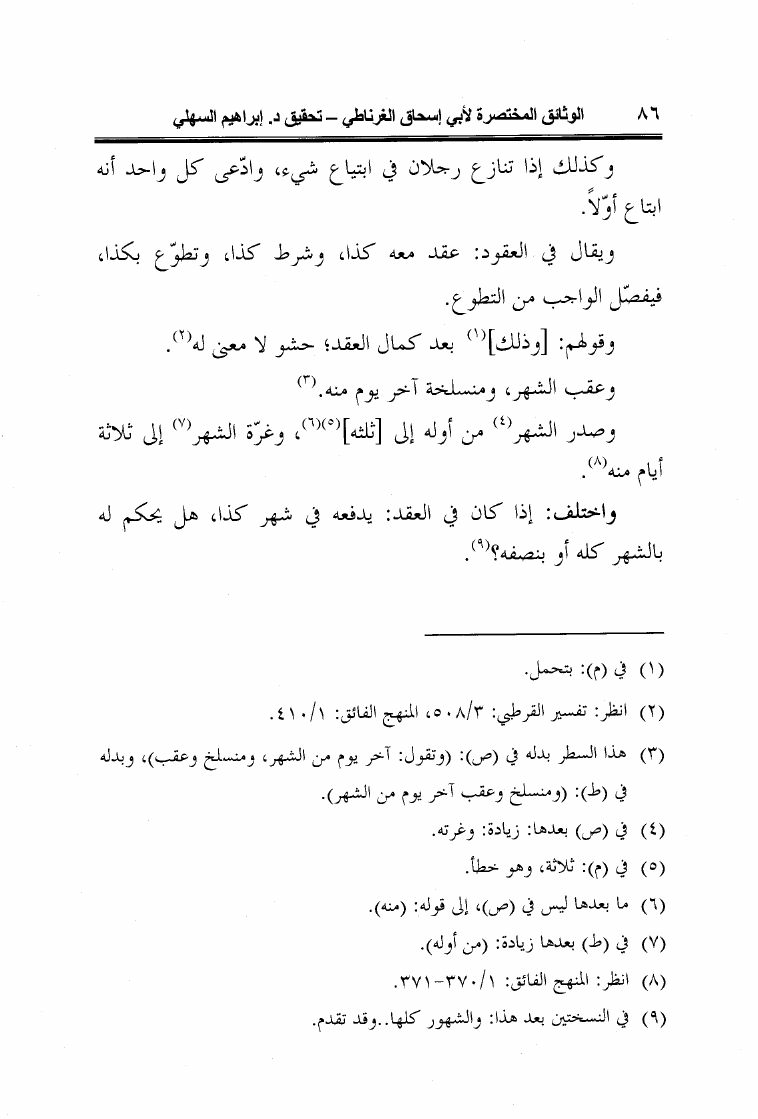 ٨٦ الوثائق المختصرة لأبي إسحاق الغرناطي – تحقيق د. إبراهيم السهلي
وكذلك إذا تنازع رجلان في ابتياع شيء، وادّعى كل واحد أنه
ابتاع أوّلاً.
ويقال في العقود: عقد معه كذا، وشرط كذا، وتطوّع بكذا،
فيفصّل الواجب من التطوع.
وقولهم: [وذلك](١) بعد كمال العقد؛ حشو لا معنى له(٢).
وعقب الشهر، ومنسلخة آخر يوم منه.(٣)
وصدر الشهر(٤) من أوله إلى [ثلثه](٥)(٦)، وغرّة الشهر(٧) إلى ثلاثة
أيام منه(٨).
واختلف: إذا كان في العقد: يدفعه في شهر كذا، هل يحكم له
بالشهر كله أو بنصفه؟(٩).
(١) في (م): بتحمل.
(٢) انظر: تفسير القرطبي: ٥٠٨/٣، المنهج الفائق: ٤١٠/١.
(٣) هذا السطر بدله في (ص): (وتقول: آخر يوم من الشهر، ومنسلخ وعقب)، وبدله
في (ط): (ومنسلخ وعقب آخر يوم من الشهر).
(٤) في (ص) بعدها: زيادة: وغرته.
(٥) في (م): ثلاثة، وهو خطأ.
(٦) ما بعدها ليس في (ص)، إلى قوله: (منه).
(٧) في (ط) بعدها زيادة: (من أوله).
(٨) انظر: المنهج الفائق: ٣٧٠/١-٣٧١.
(٩) في النسختين بعد هذا: والشهور كلها..وقد تقدم.